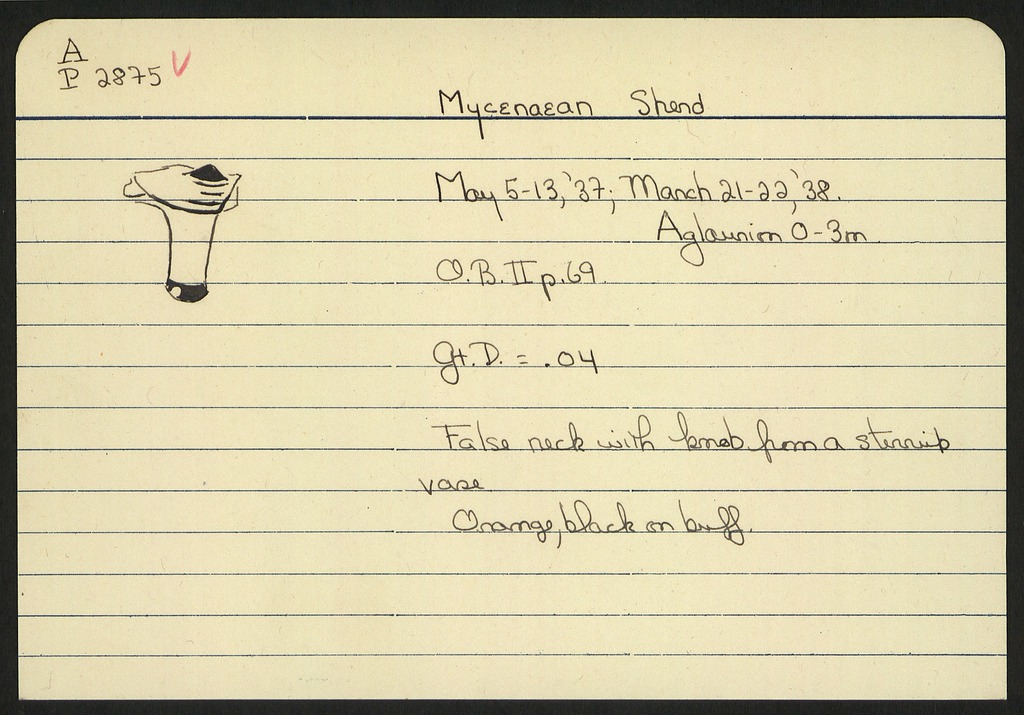 A
P 2875 V
Mycenaean Sherd
May 5-13, '37; March 21-22, '38.
Aglaurion 0-3m
O.B. II p.69.
Gt. D. = .04
False neck with knob from a stirrup
vase
Orange, black on buff.